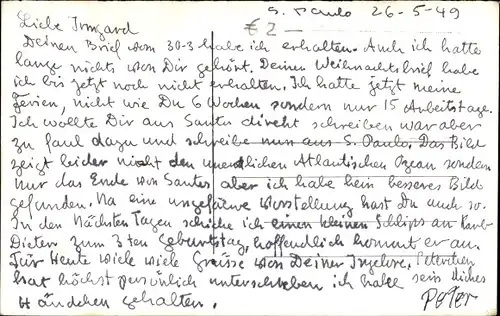 S. Paulo 26-5-49
€2-
Liebe Irmgard
Deinen Brief vom 30-3 habe ich erhalten. Auch ich hatte
lange nichts von Dir gehört. Deinen Weihnachtsbrief habe
ich bis jetzt noch nicht erhalten. Ich hatte jetzt meine
Ferien, nicht wie Du 6 Wochen sondern nur 15 Arbeitstage.
Ich wollte Dir aus Santos direkt schreiben war aber
zu faul dazu und schreibe nun aus S. Paulo. Das Bild
zeigt leider nicht den unendlichen Atlantischen Ozean sondern
nur das Ende von Santos aber ich habe kein besseres Bild
gefunden. Na eine ungefähre Vorstellung hast Du auch so.
In den nächsten Tagen schicke ich einen kleinen Schlips an Karl-
Dieter zum 3ten Geburtstag, hoffentlich kommt er an.
Für Heute viele viele Grüsse von Deiner Ingelore. Peterchen
hat höchst persönlich unterschrieben ich habe sein dickes
Händchen gehalten.
Peter